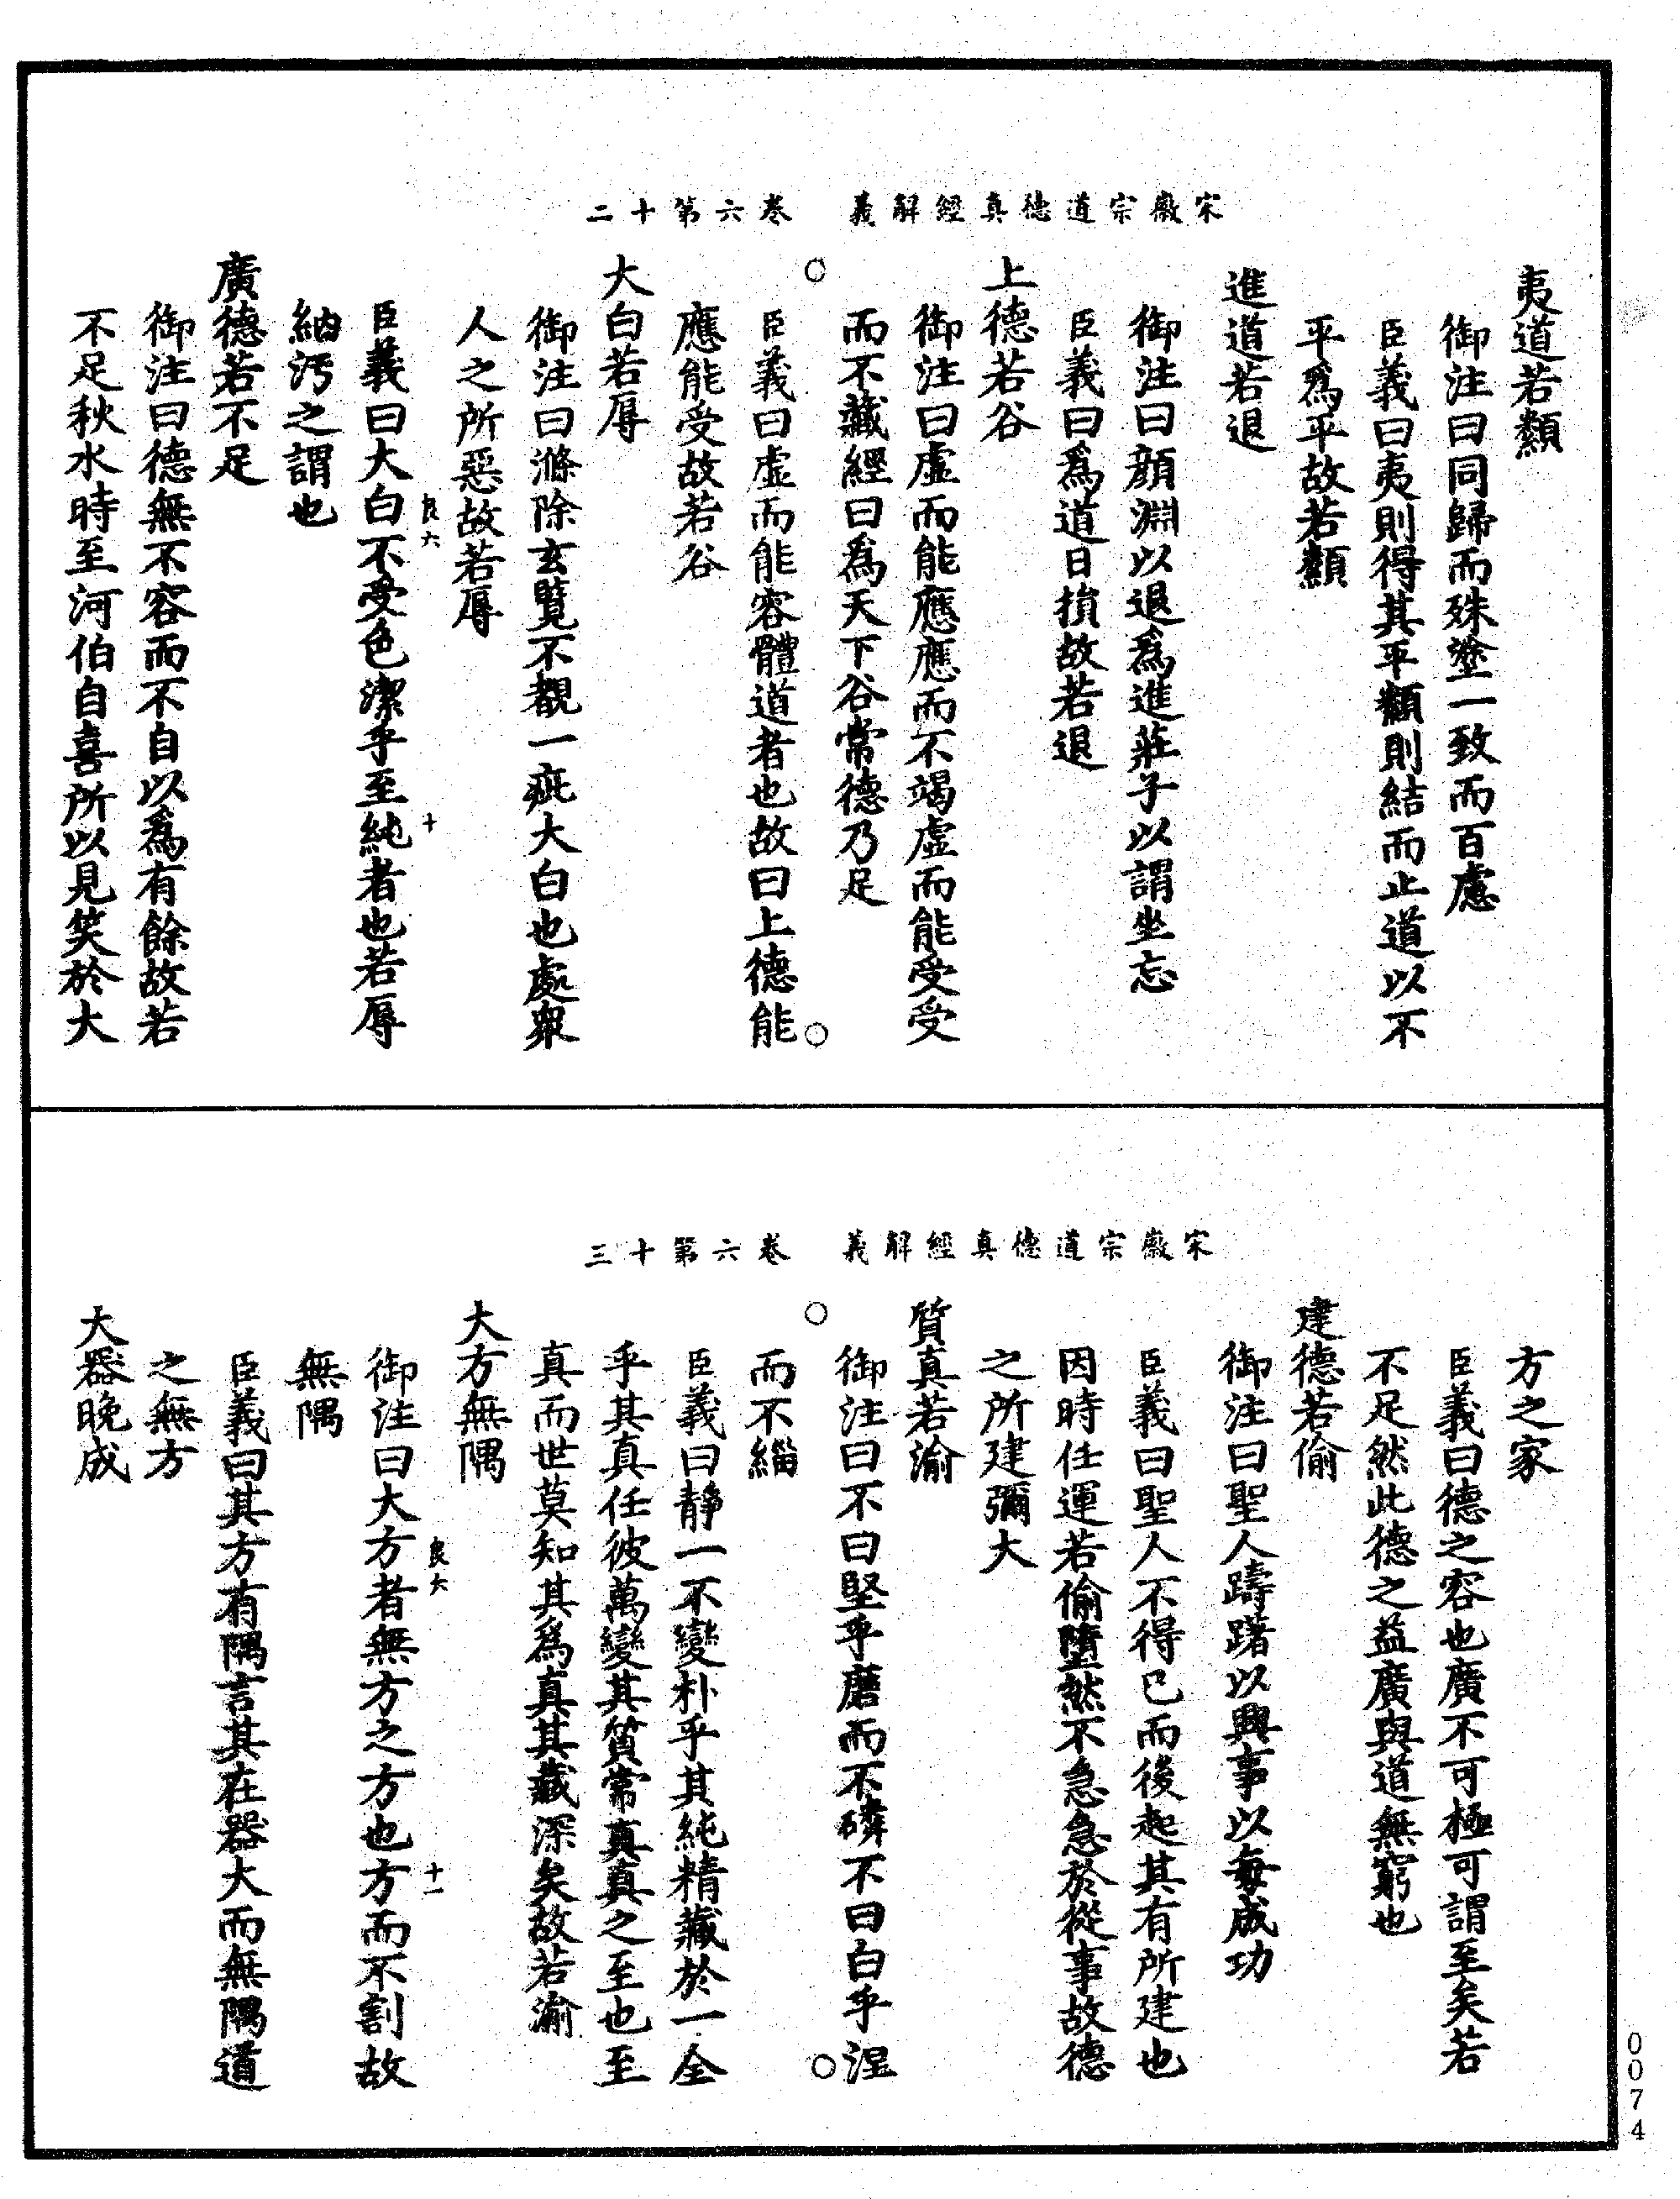 宋徽宗道德真經解義　卷六第十二
夷道若纇
御注曰同歸而殊塗一致而百慮
臣義曰夷則得其平纇則結而止道以不
平爲平故若纇
進道若退
御注曰顔淵以退爲進莊子以謂坐忘
臣義曰爲道日損故若退
上德若谷
御注曰虛而能應應而不竭虛而能受受
而不藏經曰爲天下谷常德乃足
臣義曰虛而能容體道者也故曰上德能
應能受故若谷
大白若辱
御注曰滌除玄覽不覩一疵大白也處衆
人之所惡故若辱
良六　十
臣義曰大白不受色潔乎至純者也若辱
納汚之謂也
廣德若不足
御注曰德無不容而不自以爲有餘故若
不足秋水時至河伯自喜所以見笑於大
宋徽宗道德真經解義　卷六第十三
方之家
臣義曰德之容也廣不可極可謂至矣若
不足然此德之益廣與道無窮也
建德若偷
御注曰聖人躊躇以興事以每成功
臣義曰聖人不得已而後起其有所建也
因時任運若偷墮然不急急於從事故德
之所建彌大
質真若渝
御注曰不曰堅乎磨而不磷不曰白乎涅
而不緇
臣義曰靜一不變朴乎其純精藏於一全
乎其真任彼萬變其質常真真之至也至
真而世莫知其爲真其藏深矣故若渝
大方無隅
良六　十一
御注曰大方者無方之方也方而不割故
無隅
臣義曰其方有隅言其在器大而無隅道
之無方
大器晚成
0074